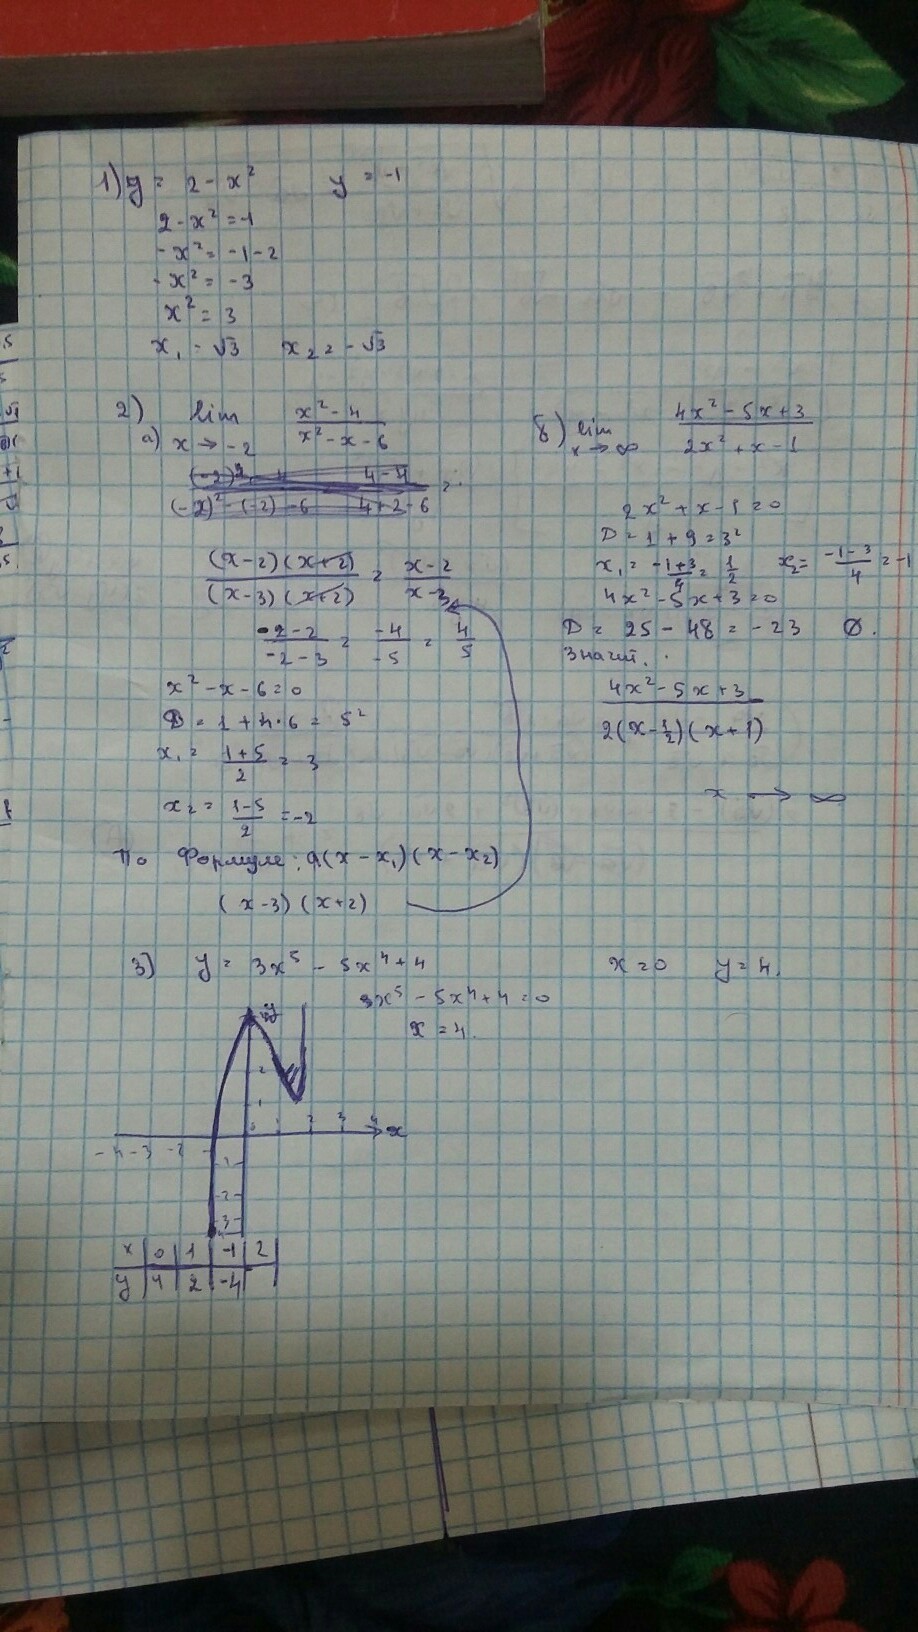 1) y = 2 - x² y = -1
2 - x² = -1
- x² = -1 - 2
- x² = -3
x² = 3
x₁ = √3 x₂ = -√3
2) lim x² - 4
а) x → -2 x² - x - 6
(-2)² 4 - 4
(-2)² - (-2) - 6 4 + 2 - 6 =
(x-2)(x+2) = x-2
(x-3)(x+2) x-3
-2-2 = -4 = 4
-2-3 -5 5
x² - x - 6 = 0
D = 1 + 4·6 = 5²
x₁ = 1+5 = 3
2
x₂ = 1-5 = -2
2
По формуле: a(x - x₁)(x - x₂)
(x-3)(x+2)
б) lim 4x² - 5x + 3
x → ∞ 2x² + x - 1
2x² + x - 1 = 0
D = 1 + 9 = 3²
x₁ = -1+3 = 1 x₂ = -1-3 = -1
4 2 4
4x² - 5x + 3 = 0
D = 25 - 48 = -23 Ø.
Значит.
4x² - 5x + 3
2(x - 1/2)(x + 1)
x → ∞
3) y = 3x⁵ - 5x⁴ + 4 x = 0 y = 4.
3x⁵ - 5x⁴ + 4 = 0
x = 4.
y
2
1
1 2 3 4 x
-4 -3 -2
-1
-2
-3
x 0 1 -1 2
y 4 2 -4